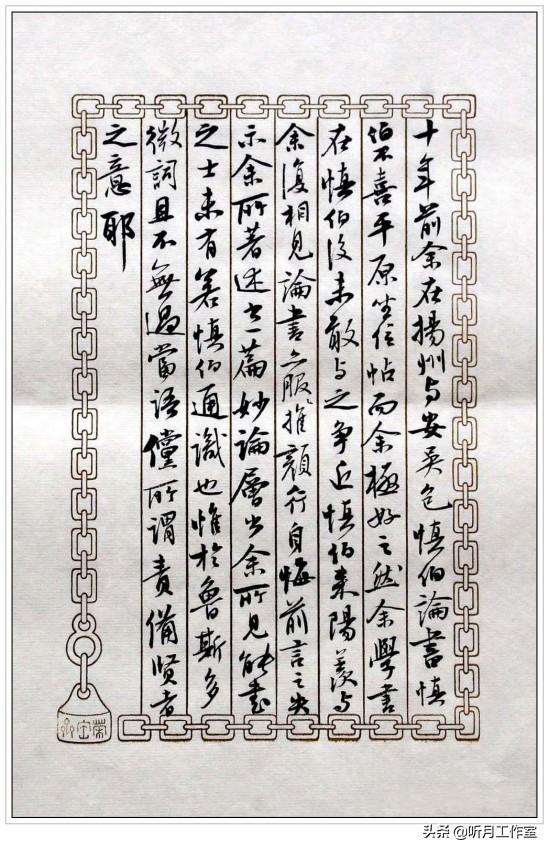 十年前余在揚州与安吴包慎伯論書慎
伯不喜平原坐位帖而余極好之然余學書
在慎伯後未敢与之争近慎伯来陽羡与
余復相見論書亦服推顔行自悔前言之失
示余所著述書一篇妙論層出余所見能書
之士未有若慎伯通識也惟於魯斯多
微詞且不無過當語儻所謂責備賢者
之意耶
榮宝斋
头条 @听月工作室